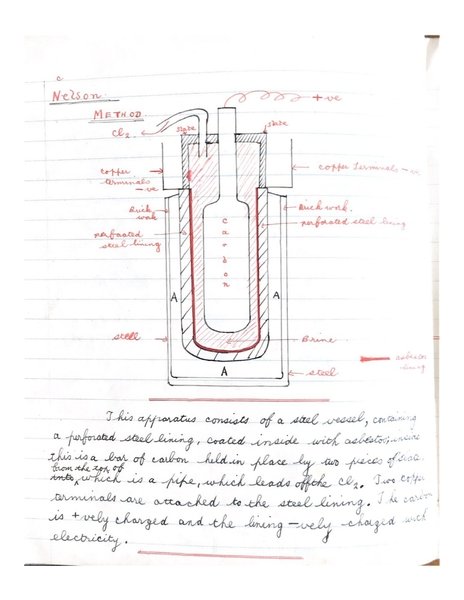 c
Nelson
METHOD.
+ve
Cl2.
slate
slate
copper terminals -ve
copper Terminals -ve
Brick work
Brick work.
perforated steel lining
perforated steel lining
carbon
A
A
steel
Brine
asbestos lining
A
steel
This apparatus consists of a steel vessel, containing
a perforated steel lining, coated inside with asbestos, inside
this is a bar of carbon held in place by two pieces of slate
from the top of
into, which is a pipe, which leads off the Cl2. Two copper
terminals are attached to the steel lining. The carbon
is +vely charged and the lining -vely charged with
electricity.